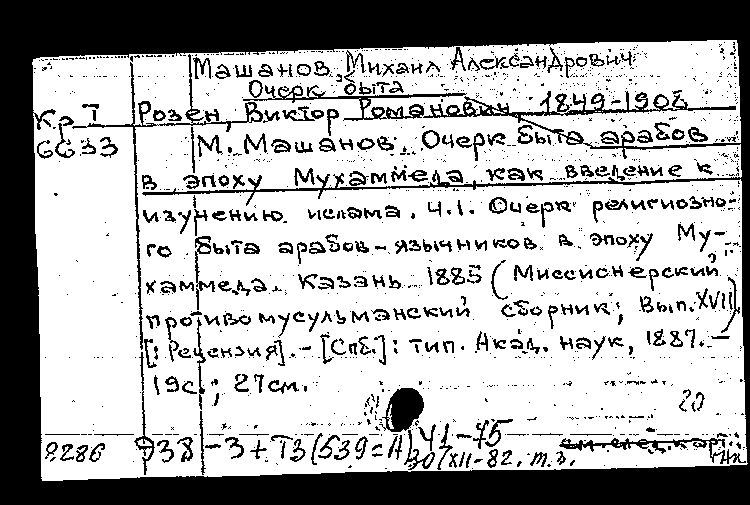 Машанов, Михаил Александрович
Очерк быта
Кр I Розен, Виктор Романович, 1849-1908
6633 М. Машанов. Очерк быта арабов
в эпоху Мухаммеда, как введение к
изучению ислама. Ч.1. Очерк религиозно-
го быта арабов-язычников в эпоху Му-
хаммеда. Казань 1885 (Миссионерский
противомусульманский сборник; Вып. XVII)
[: Рецензия]. - [Спб.]: тип. Акад. наук, 1887. -
19с.; 27см.
20
8286 Э38-3+Т3(539=А)41-45 см. след. карт.
30/XII-82. т.з.